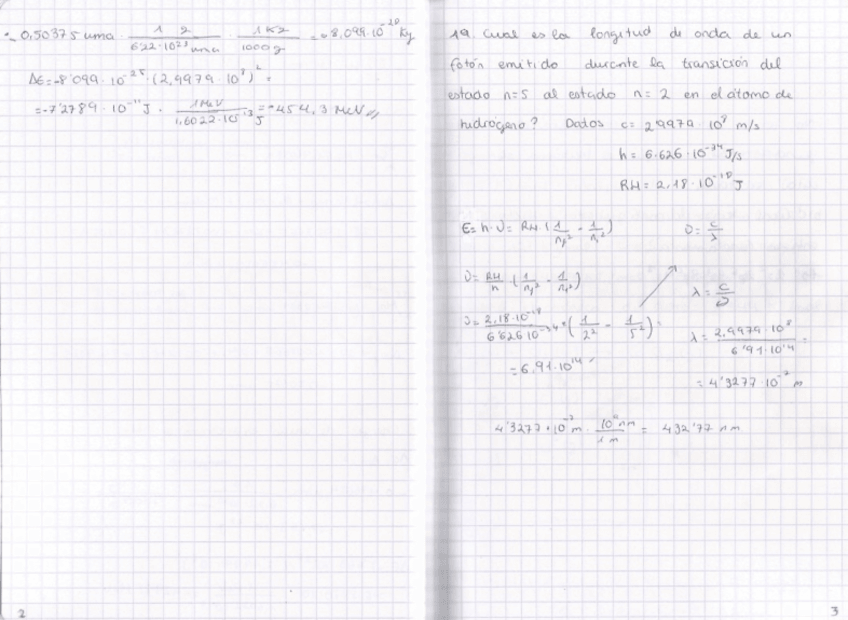 - 0,50375 uma · 1 g / 6'22·10²³ uma · 1 kg / 1000 g = -8,099·10⁻²⁸ kg
ΔE = -8'099·10⁻²⁸·(2,9979·10⁸)² =
= -7'2789·10⁻¹¹ J · 1 MeV / 1,6022·10⁻¹³ J = -454,3 MeV
2
19. Cual es la longitud de onda de un
fotón emitido durante la transición del
estado n=5 al estado n=2 en el átomo de
hidrogeno? Datos c= 2'9979·10⁸ m/s
h= 6.626·10⁻³⁴ J/s
RH= 2,18·10⁻¹⁸ J
E= h·υ= RH·(1/nf² - 1/ni²)
υ= c/λ
υ= RH/h ·(1/nf² - 1/ni²)
λ= c/υ
υ= 2,18·10⁻¹⁸ / 6'626·10⁻³⁴ ·(1/2² - 1/5²)
λ= 2,9979·10⁸ / 6'91·10¹⁴ =
= 6,91·10¹⁴
= 4'3277·10⁻⁷ m
4'3277·10⁻⁷ m · 10⁹ nm / 1 m = 432'77 nm
3